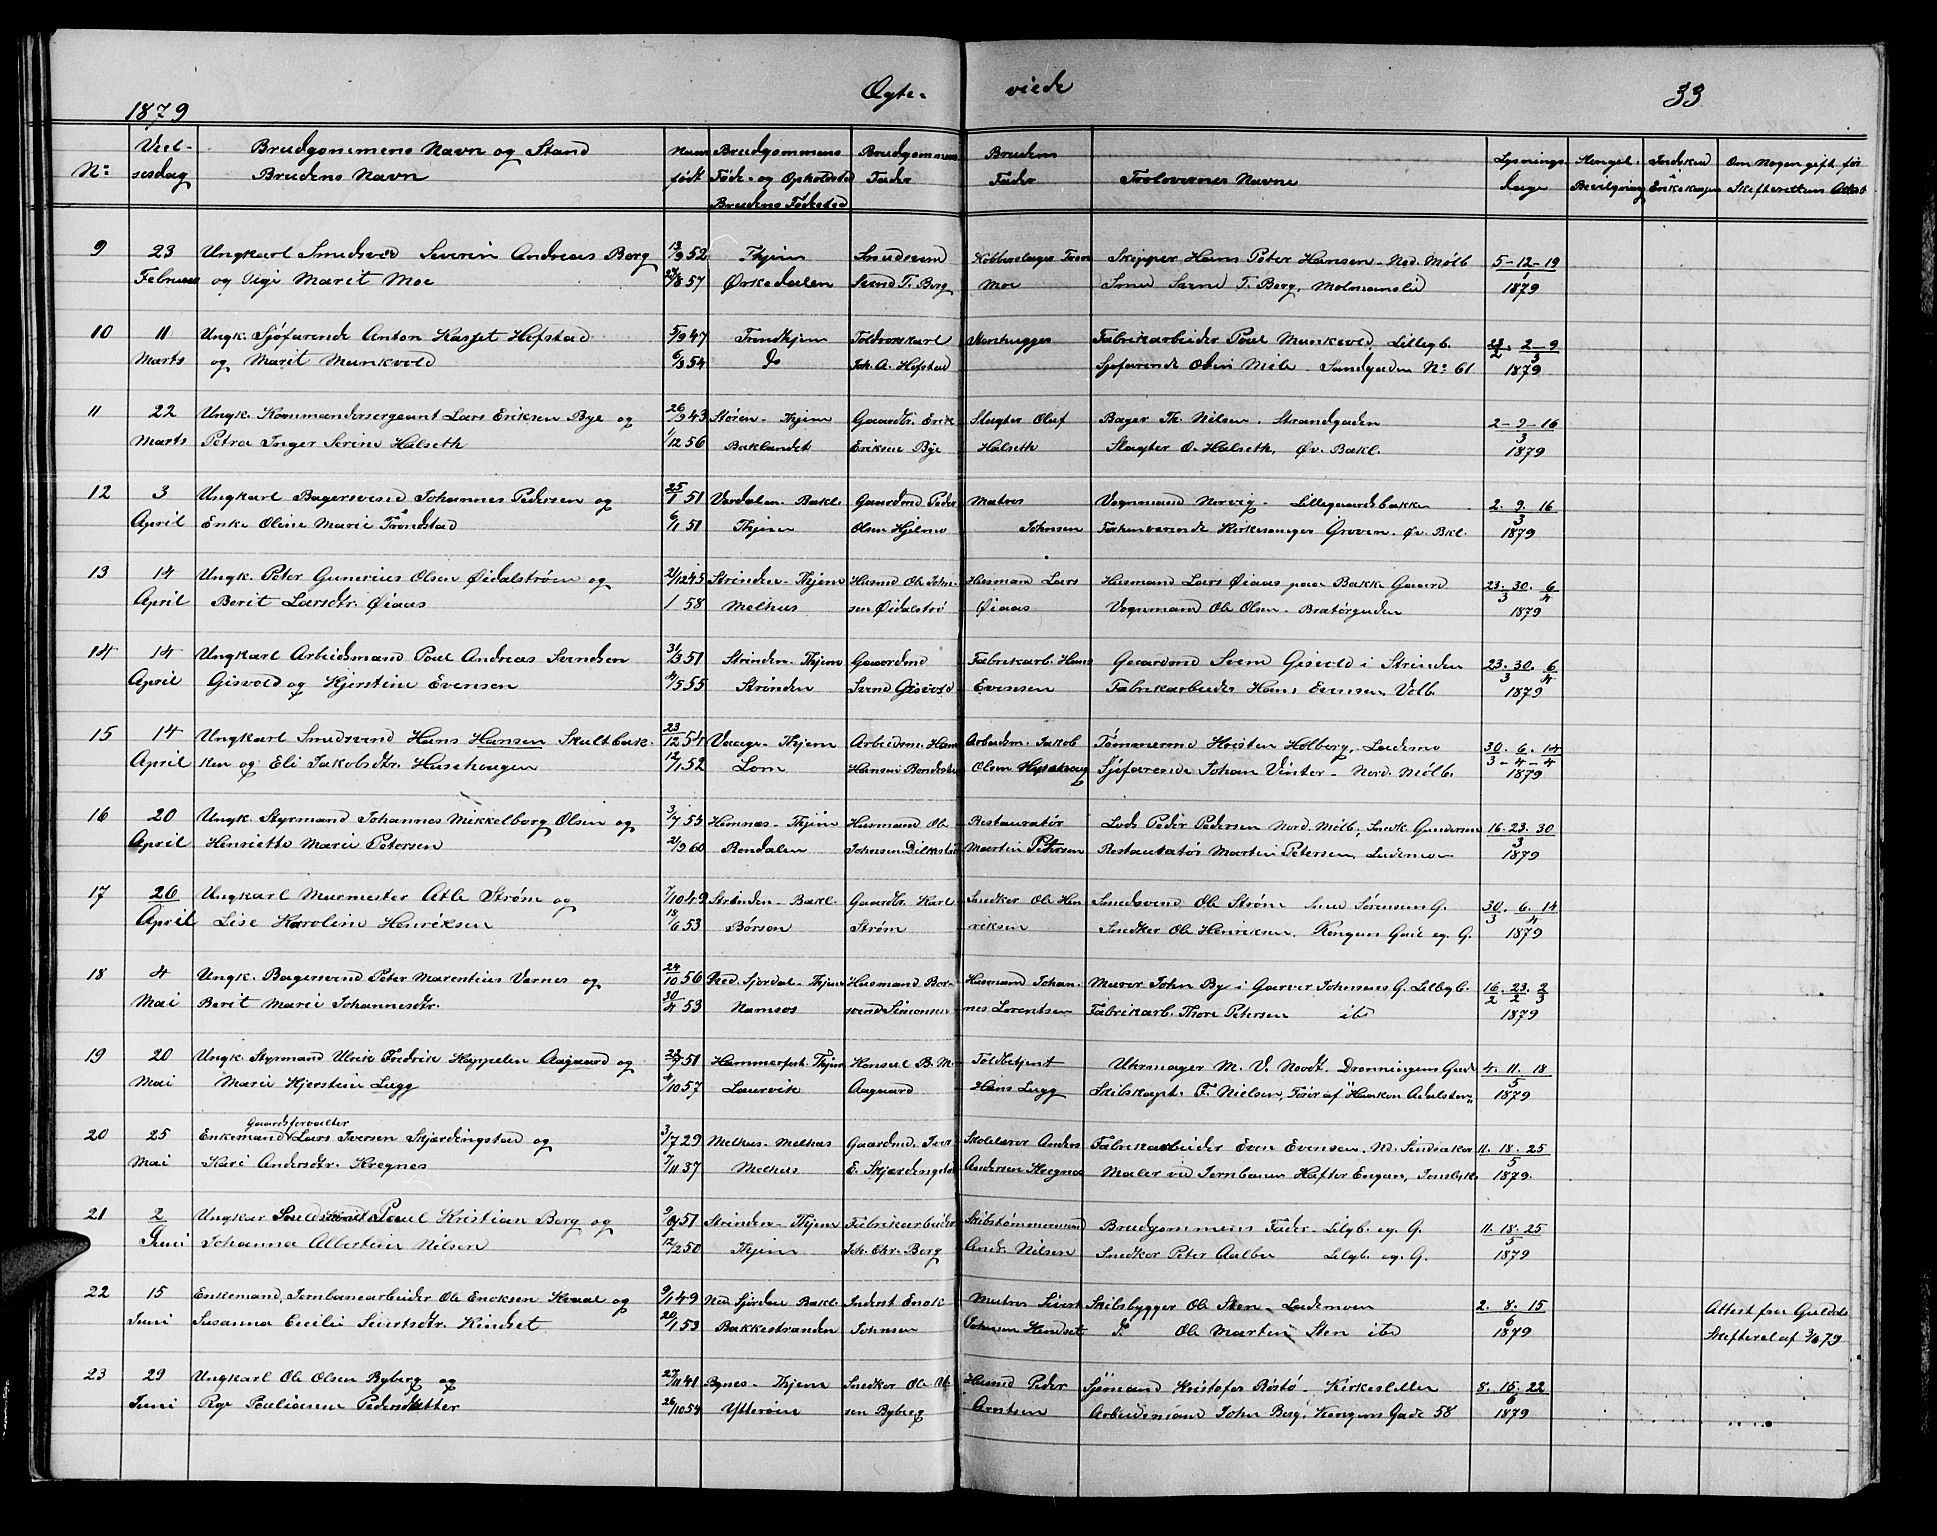 1879 Ægte- viede 33
No: Viel- Brudgommens Navn og Stand Naar Brudgommens Brudgommens Brudens Lysnings
sesdag Brudens Navn født Føde- og Opholdssted Fader Fader Trolovernes Navne dage Bevilgning Om Nogen gift før
Brudens Fødested Skifterettens Attest
9 23 Ungkarl Smedsvd Severin Andreas Berg 13/9 52 Thjem Smedsvend Kobberslager Skipper Hans Peter Hansen - Ned. Mølb 5-12-19
Februar og Pige Marit Moe 27/8 57 Ørkedalen Svend T. Berg Moe Smed Svend T. Berg, 1 1879
10 11 Ungk. Sjøfarende Anton Kasjet Hofstad 5/9 47 Trondhjem Toldvoxkarl Stenhugger Fabrikarbeider Poul Munkvold, Lillegb. 23/2. 2-9
Marts og Marit Munkvold 6/3 54 Do Joh. A. Hofstad Sjøfarende Olin Mile - Sandgaden No 61 3 1879
11 22 Ungk. Kommandersergeant Lars Eriksen Bye og 26/9 43 Støren - Thjem Gaardbr. Erik Slagter Oluf Bager Th. Nilsen, Strandgaden 2-9-16
Marts Petra Inger Serine Halseth 1/12 56 Baklandet Eriksen Bye Halseth Slagter O. Halseth, Øv. Bakl. 3 1879
12 3 Ungkarl Bagersvend Johannes Pedersen og 25/1 51 Værdalen - Bakl. Gaardmd Peder Matros Vognmand Norvig - Lillegaardsbakken 2. 9. 16
April Enke Oline Marie Trondstad 6/1 51 Thjem Olsen Hjelme Johnsen Forhenværende Kirkesanger Groven, Øv. Bkl. 3 1879
13 14 Ungk. Peter Gunerius Olsen Øidalstrøm og 21/12 45 Strinden - Thjem Husmd Ole John- Husmand Lars Husmand Lars Øiaas paa Bakke Gaard 23. 30. 6
April Berit Larsdtr. Øiaas 1 58 Melhus sen Øidalstrø Øiaas Vognmand Ole Olsen - Bratørgaden 3 4 1879
14 14 Ungkarl Arbeidsmand Poul Andreas Svendsen 31/3 51 Strinden - Thjem Gaardmd Fabrikarb. Hans Gaardmd Svend Gisvold i Strinden 23. 30. 6
April Gisvold og Kjerstine Evensen 4/5 55 Strinden Svend Gisvold Evensen Fabrikarbeider Hans Evensen, Volb. 3 4 1879
15 14 Ungkarl Smedsvend Hans Hansen Skultbak- 23/12 54 Vaage - Thjem Arbeidsm. Hans Arbeidsm. Jakob Tømmermd Holsten Holberg, Lademo 30. 6. 14
April ken og Eli Jakobsdtr. Husehaugen 12/1 52 Lom Hansen Olsen Sjøfarende Johan Vinter - Nord. Mølb. 3-4-4 1879
16 20 Ungk. Styrmand Johannes Mikkelborg Olsen og 3/7 53 Hemnæs - Thjem Husmand Ole Restauratør Lods Peder Pedersen Nord. Mølb, Snedk. Gundersen 16. 23. 30
April Henriette Marie Petersen 21/9 60 Rendalen Johnsen Martin Petersen Restauratør Martin Petersen, Lademoen 3 1879
17 26 Ungkarl Murmester Atle Strøm og 7/10 49 Strinden - Bakl. Gaardbr. Karl Snedker Ole Hen Smedsvend Ole Strøm Smed Sørensens G. 30. 6. 14
April Lise Karoline Henriksen 18/6 53 Børsen Strøm riksen Snedker Ole Henriksen, Kongens Gade eg. G. 3 4 1879
18 4 Ungk. Bagersvend Peter Marentius Værnes og 24/10 56 Ned. Sjørdal - Thjem Husmand Ber- Husmand Johan- Murer John By i Garver Johnsens G. Lillegb. 16. 23. 2
Mai Berit Marie Johannesdtr. 30/4 53 Namsos svend Simonsen nes Lorentsen Fabrikarb. Thore Petersen ibd 2 2 3 1879
19 20 Ungk. Styrmand Ulrik Fredrik Kappelen Aagaard og 22/7 51 Hammerfest Thjem Konsul B. M. Toldbetjent Uhrmager M. V. Novdt, Dronningens Gade 4. 11. 18
Mai Marie Kjerstine Lugg 4/10 57 Laurvik Aagaard Hans Lugg Skibskapt. F. Nielsen, Fører af "Haakon Adalsten" 5 1879
Gaardsforvalter
20 25 Enkemand Lars Iversen Skjerdingstad og 3/7 29 Melhus - Melhus Gaardmd. Iver Skolelærer Anders Fabrikarbeider Even Evensen, Nd. Sindsaker 11. 18. 25
Mai Kari Andersdtr. Kregnes 7/11 37 Melhus E. Skjerdingstad Andersen Kregnes Maler ved Jernbanen Hafter Engan, 5 1879.
21 2 Ungkar Smedsvend Paul Kristian Berg og 9/6 51 Strinden - Thjem Fabrikarbeider Skibstømmermand Brudgommens Fader - Lilgb. eg. G. 11. 18. 25
Juni Johanna Albertine Nilsen 12/2 50 Thjem Joh. Chr. Berg Andr. Nilsen Snedker Peter Aalbu Lilgb. eg. G. 5 1879
22 15 Enkemand, Jernbanearbeider Ole Enoksen Kvaal og 9/1 49 Ned Sjørdalen Bakl. Inderst Enok Matros Sivert Skibsbygger Ole Sten - Lademoen 2. 8. 15 Attest fra Guldals
Juni Susanna Cecilie Sivertsdtr. Kindset 21/1 53 Bakkestranden Johnsen Johnsen Kindset Do Ole Martin Sten ibd 6 1879 Skifteret af 3/6 79
23 29 Ungkarl Ole Olsen Byberg og 27/11 41 Bynes - Thjem Snedker Ole Ol- Husmd Peder Sjømand Kristofer Røstø - Kirkesletten 8. 15. 22
Juni Pge Paulianne Pedersdatter 26/10 54 Ytterøen sen Byberg Arntsen Arbeidsmand John Berg, Kongens Gade 58 6 1879